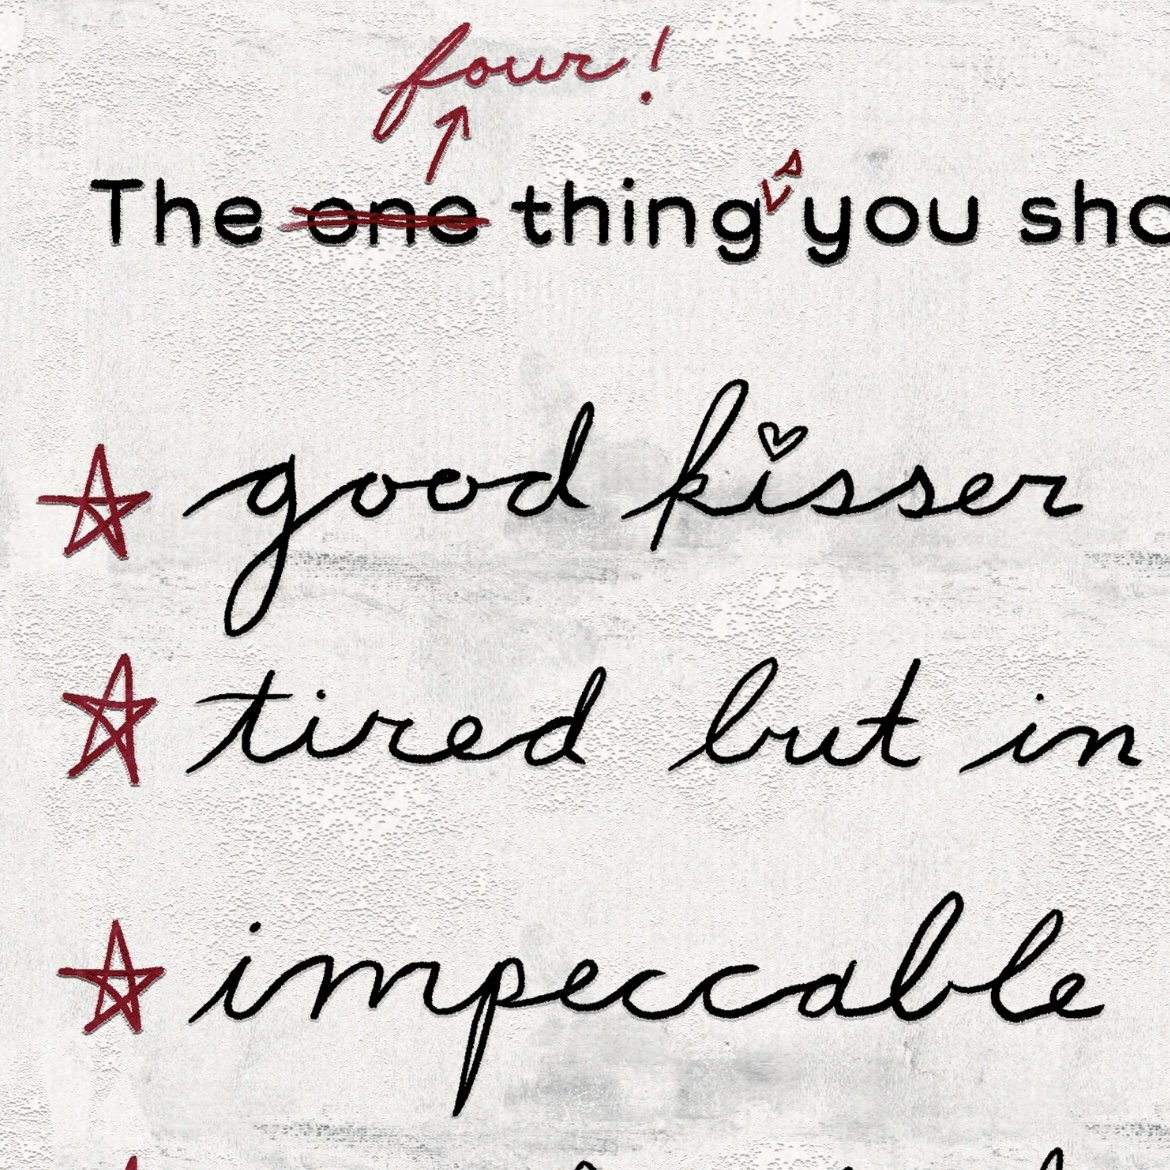 four!
The one things you sho
good kisser
tired but in
impeccable